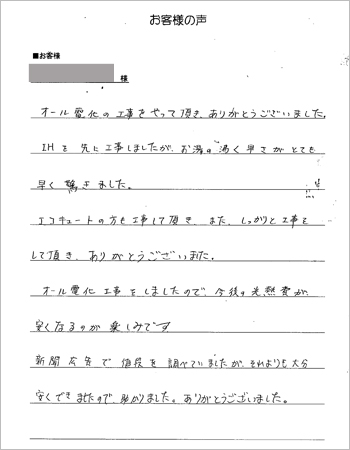 お客様の声
■お客様
様
オール電化の工事をやって頂き、ありがとうございました。
IHを先に工事しましたが、お湯の沸く早さがとても
早く驚きました。
エコキュートの方も工事して頂き、また、しっかりと工事を
して頂き、ありがとうございました。
オール電化工事をしましたので、今後の光熱費が、
安くなるのが楽しみです
新聞広告で値段を調べていましたが、それよりも大分
安くできましたので、助かりました。ありがとうございました。